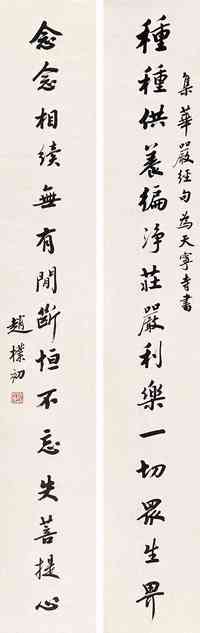 集華嚴經句為天寧寺書
種種供養徧淨莊嚴利樂一切眾生界
念念相續無有閒斷恒不忘失菩提心
趙樸初